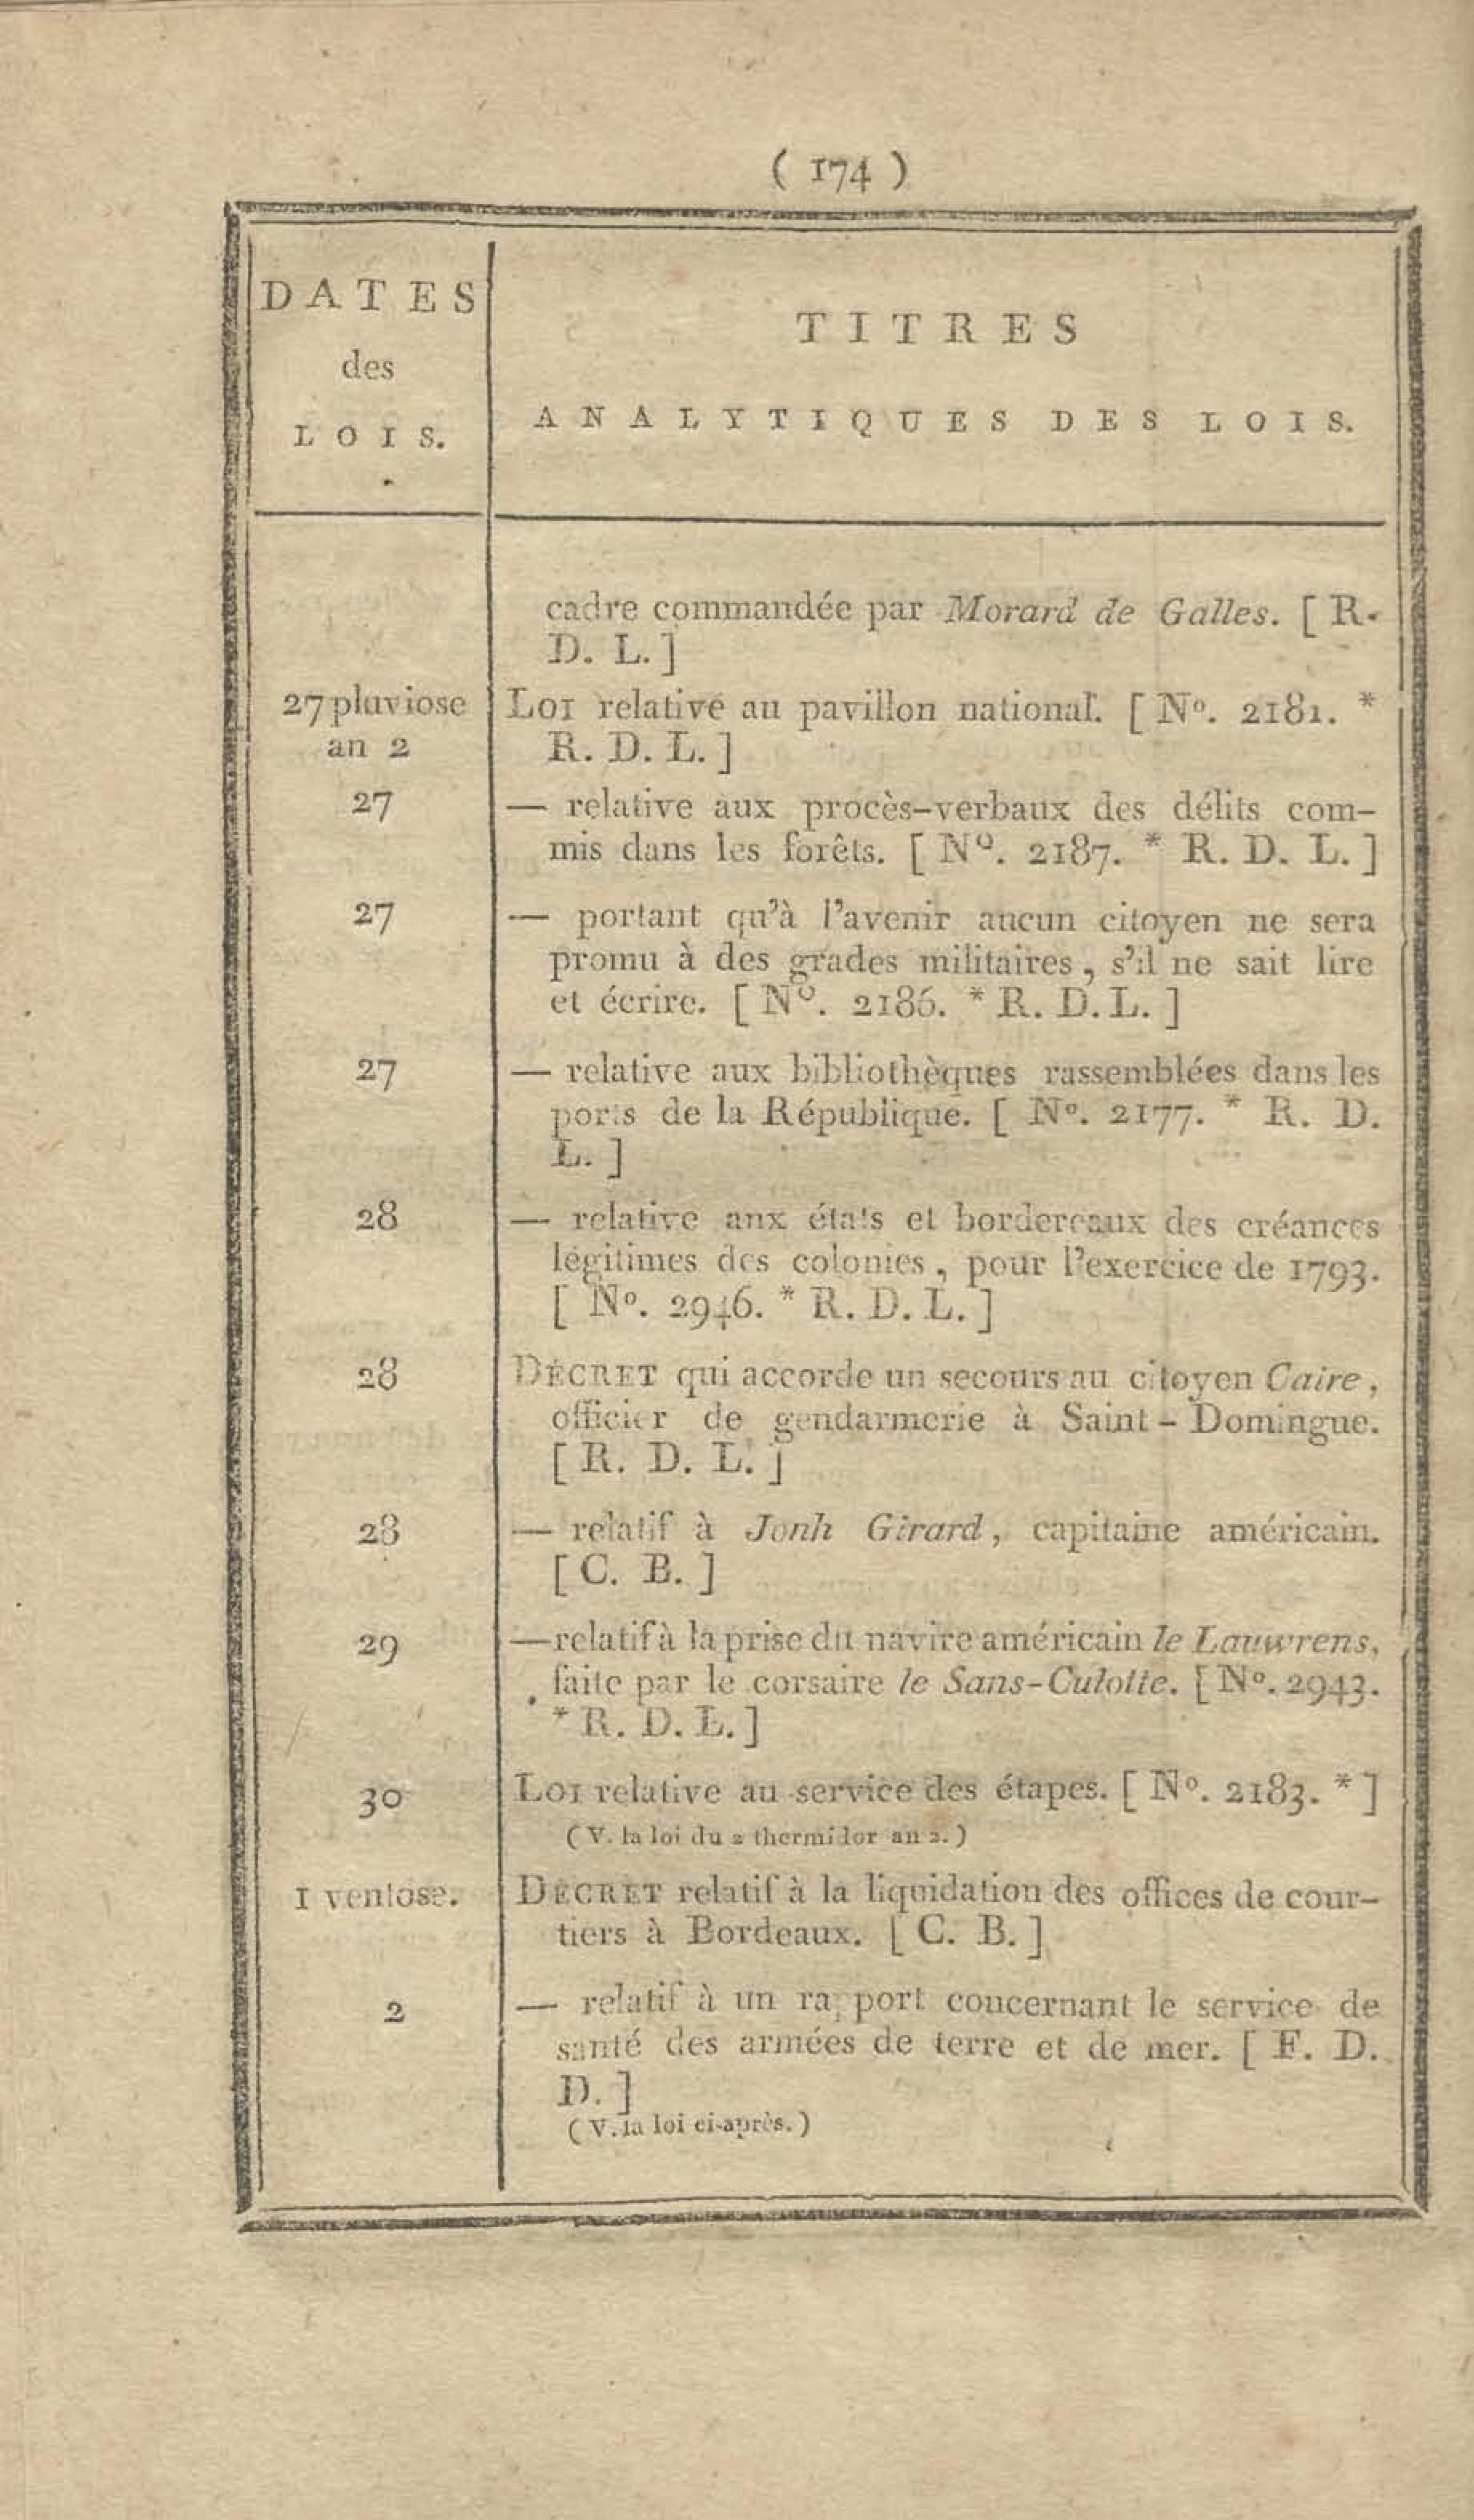 ( 174 )
DATES
des
LOIS.
TITRES
ANALYTIQUES DES LOIS.
cadre commandée par Morard de Galles. [ R.
D. L. ]
27 pluviose LOI relative au pavillon national. [ N°. 2181. *
an 2 R. D. L. ]
27 — relative aux procès-verbaux des délits com-
mis dans les forêts. [ N°. 2187. * R. D. L. ]
27 — portant qu'à l'avenir aucun citoyen ne sera
promu à des grades militaires, s'il ne sait lire
et écrire. [ N°. 2186. * R. D. L. ]
27 — relative aux bibliothèques rassemblées dans les
ports de la République. [ N°. 2177. * R. D.
L. ]
28 — relative anx états et bordereaux des créances
légitimes des colonies, pour l'exercice de 1793.
[ N°. 2946. * R. D. L. ]
28 DÉCRET qui accorde un secours au citoyen Caire,
officier de gendarmerie à Saint-Domingue.
[ R. D. L. ]
28 — relatif à Jonh Girard, capitaine américain.
[ C. B. ]
29 — relatif à la prise du navire américain le Lauwrens,
faite par le corsaire le Sans-Culotte. [ N°. 2943.
* R. D. L. ]
30 LOI relative au service des étapes. [ N°. 2183. * ]
( V. la loi du 2 thermidor an 2. )
1 ventose. DÉCRET relatif à la liquidation des offices de cour-
tiers à Bordeaux. [ C. B. ]
2 — relatif à un rapport concernant le service de
santé des armées de terre et de mer. [ F. D.
D. ]
( V. la loi ci-après. )